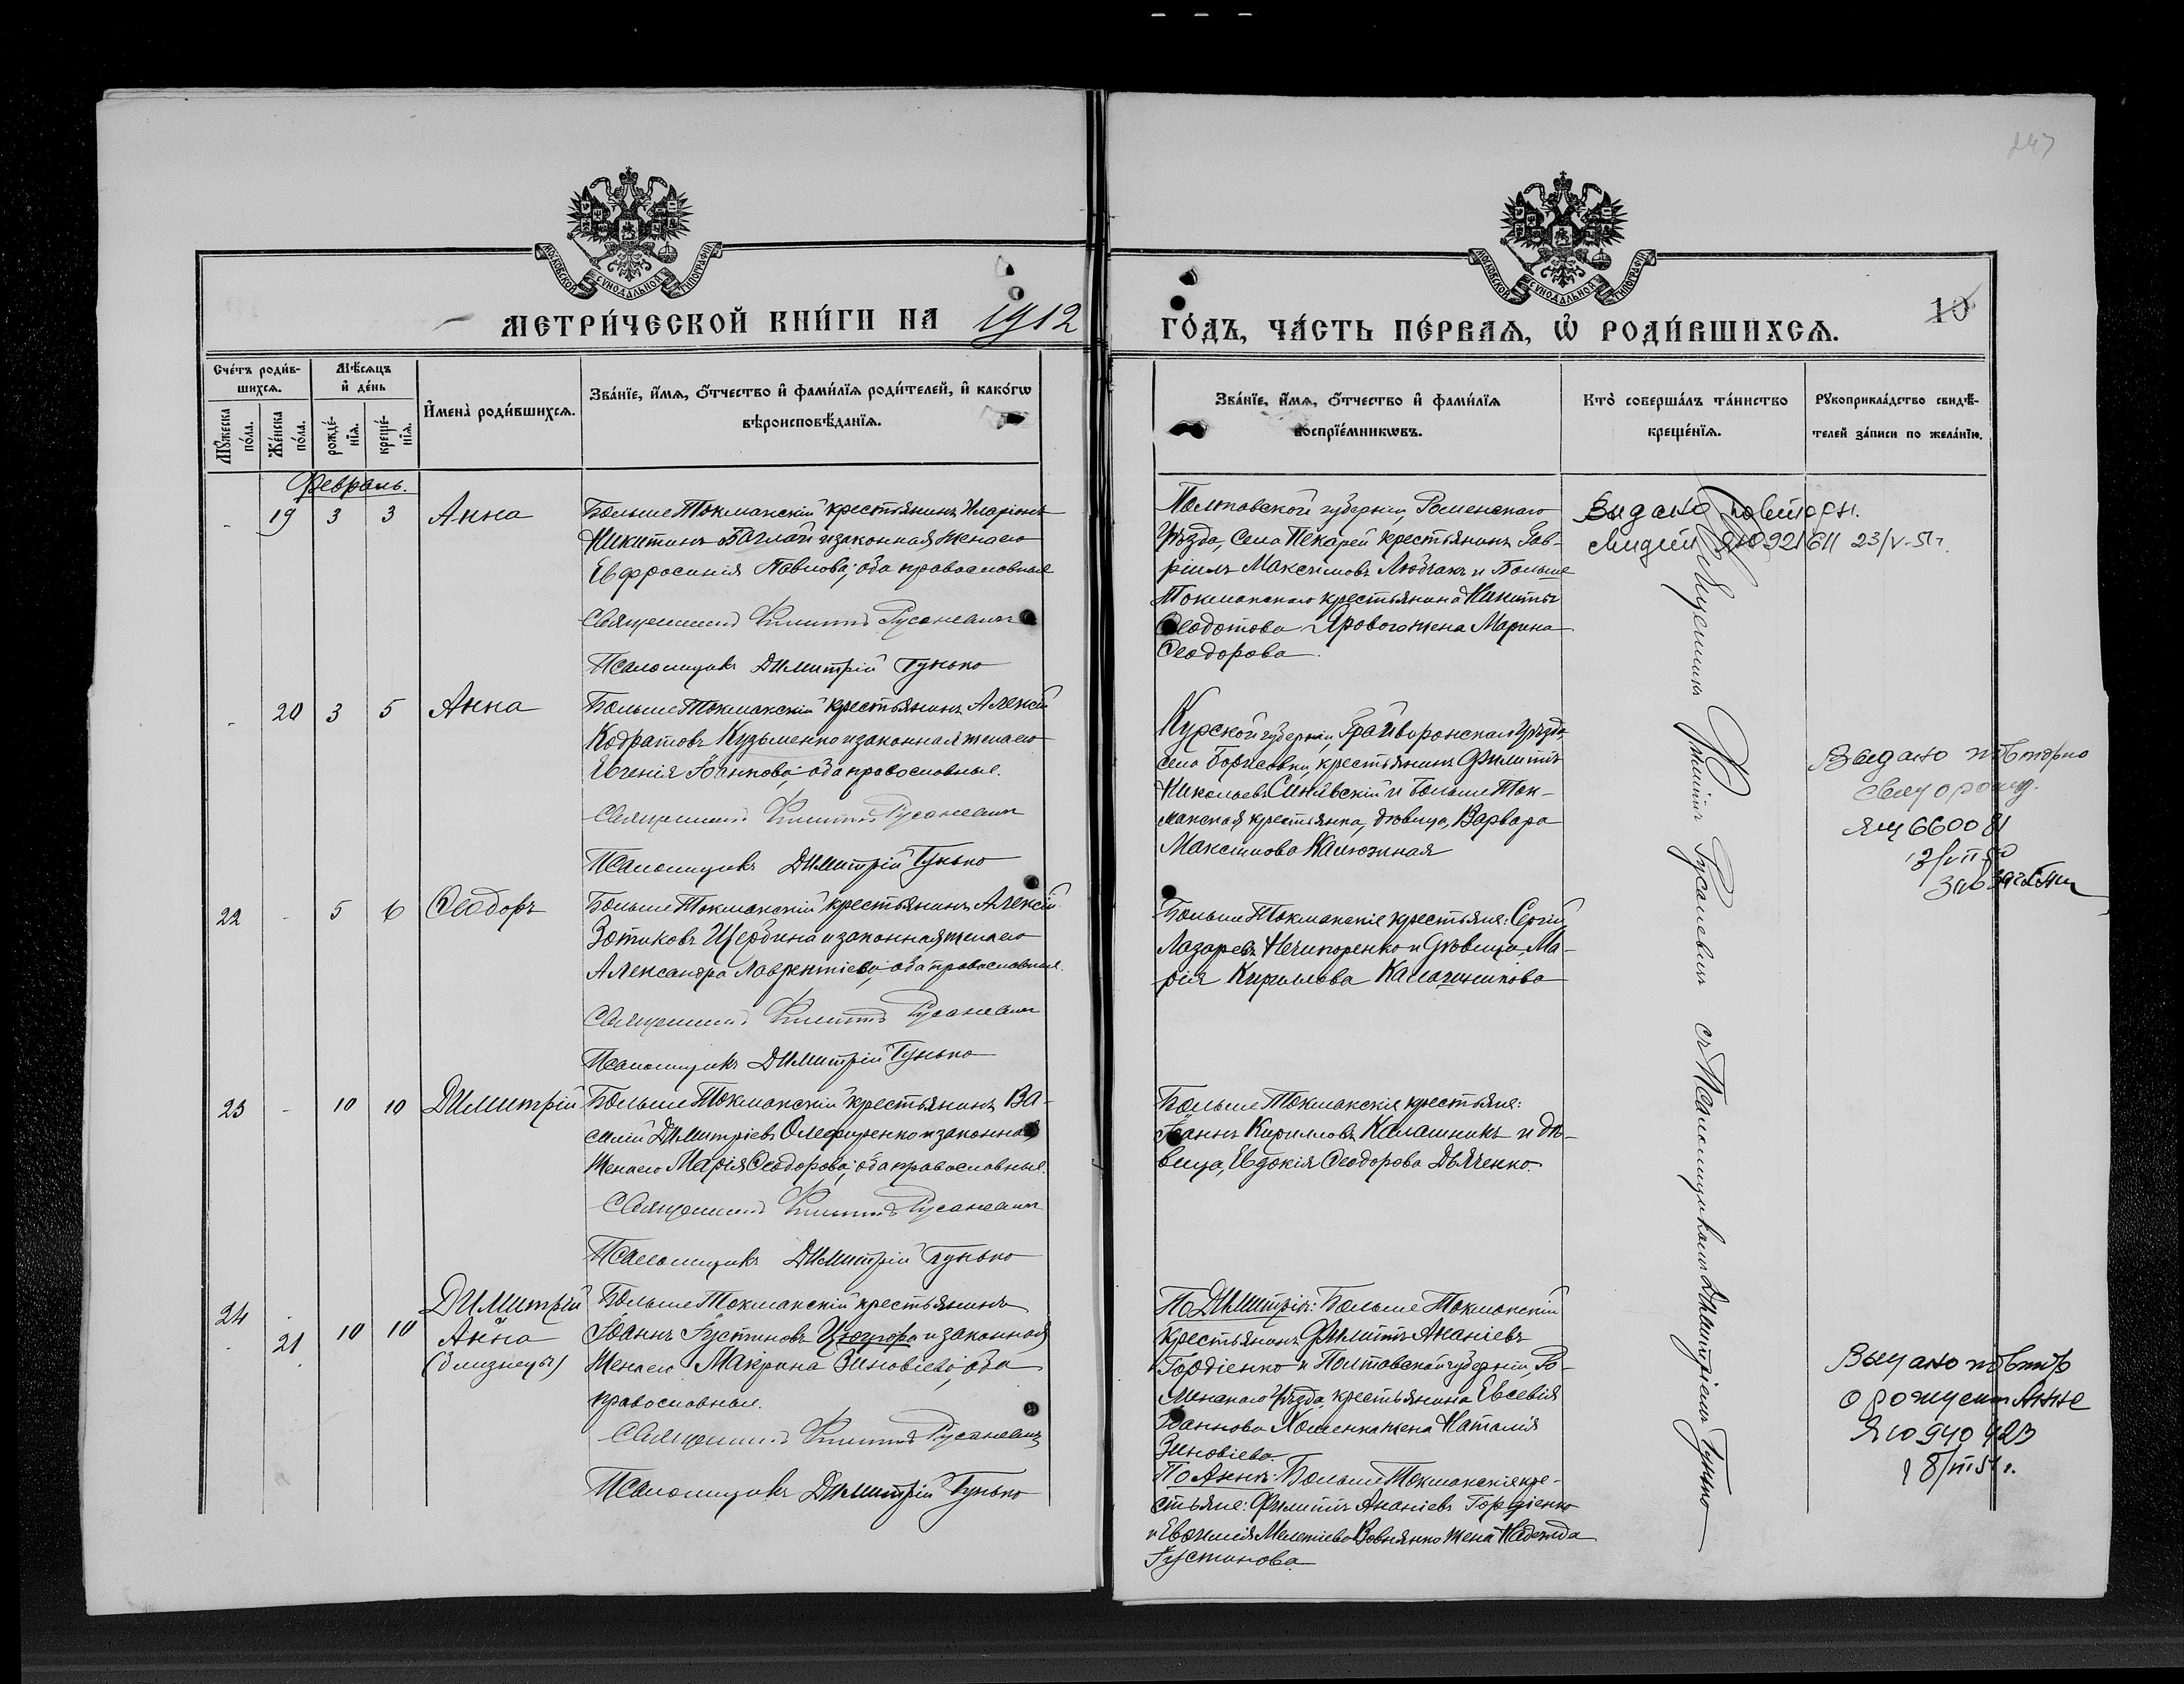 247
МОСКОВСКОЙ СѴНОДАЛЬНОЙ ТИПОГРАФІИ
МОСКОВСКОЙ СѴНОДАЛЬНОЙ ТИПОГРАФІИ
МЕТРИ́ЧЕСКОЙ КНИ́ГИ НА 1912
ГО́ДЪ, ЧА́СТЬ ПЕ́РВАѦ, Ѡ҆ РОДИ́ВШИХСѦ.
10
Сче́тъ роди́в-
шихсѧ.
Мꙋ́жеска по́ла.
Же́нска по́ла.
Мѣ́сѧцъ
и҆ де́нь
рожде́-
нїѧ.
креще́-
нїѧ.
И҆мена̀ роди́вшихсѧ.
Зва́нїе, и҆́мѧ, ѻ҆́тчество и҆ фами́лїѧ роди́телей, и҆ како́гѡ
вѣроисповѣ́данїѧ.
Зва́нїе, и҆́мѧ, ѻ҆́тчество и҆ фами́лїѧ
воспрїе́мникѡвъ.
Кто̀ соверша́лъ та́инство
креще́нїѧ.
Рꙋкоприкла́дство свидѣ́-
телей за́писи по жела́нїю.
Февраль.
- 19 3 3 Анна
Больше Токмакскій крестьянинъ Иларіонъ
Никитинъ Баглай и законная жена его
Евфросинія Павлова; оба православные
Священникъ Филиппъ Русаневич
Псаломщикъ Димитрій Гунько
Полтавской губерніи, Роменскаго
Уѣзда, Села Пекарей крестьянинъ Гав-
ріилъ Максимовъ Любчакъ и Больше
Токмакскаго крестьянина Никиты
Ѳеодотова Ярового жена Марина
Ѳеодорова.
Выдано повторн.
ЯЮ 921611 23/V-51г.
- 20 3 5 Анна
Больше Токмакскій крестьянинъ Алексій
Кодратовъ Кузьменко и законная жена его
Евгенія Іоаннова; оба православные.
Священникъ Филиппъ Русаневич
Псаломщикъ Димитрій Гунько
Курской губерніи, Грайворонскаго Уѣзда,
села Борисовки, крестьянинъ Филиппъ
Николаевъ Синявскій и Больше Ток-
макская крестьянка, дѣвица, Варвара
Максимова Калюжная
Выдано повторно
свид о рожд.
660081
22 - 5 6 Ѳеодоръ
Больше Токмакскій крестьянинъ Алексій
Зотиковъ Щербина и законная жена его
Александра Лаврентіева; оба православные.
Священникъ Филиппъ Русаневич
Псаломщикъ Димитрій Гунько
Больше Токмакскіе крестьяне: Сергій
Лазаревъ Нечипоренко и дѣвица, Ма-
рія Кириллова Калашникова
23 - 10 10 Димитрій
Больше Токмакскій крестьянинъ Ва-
силій Димитріевъ Омельченко и законная
жена его Марія Ѳеодорова; оба православные.
Священникъ Филиппъ Русаневич
Псаломщикъ Димитрій Гунько
Больше Токмакскіе крестьяне:
Іоаннъ Кирилловъ Калашникъ и дѣ-
вица, Евдокія Ѳеодорова Дьяченко.
24 - Димитрій
- 21 10 10 Анна
(близнецы)
Больше Токмакскій крестьянинъ
Іоаннъ Іустиновъ и законная
жена его Макрина Зиновіева; оба
православные.
Священникъ Филиппъ Русаневич
Псаломщикъ Димитрій Гунько
По Димитріѣ: Больше Токмакскій
крестьянинъ Филиппъ Ананіевъ
Гордіенко и Полтавской губерніи, Ро-
менскаго Уѣзда, крестьянина Евсевія
Іоаннова Хоменка жена Наталія
Зиновіева.
По Аннѣ: Больше Токмакскіе кре-
стьяне: Филиппъ Ананіевъ Гордіенко
и Евѳимія Мелетіева жена Надежда
Іустинова.
Выдано повтор
о рождении Анне
ЯЮ 940423
18/III 51г.
Священникъ Филиппъ Русаневич съ Псаломщикомъ Димитріемъ Гунько